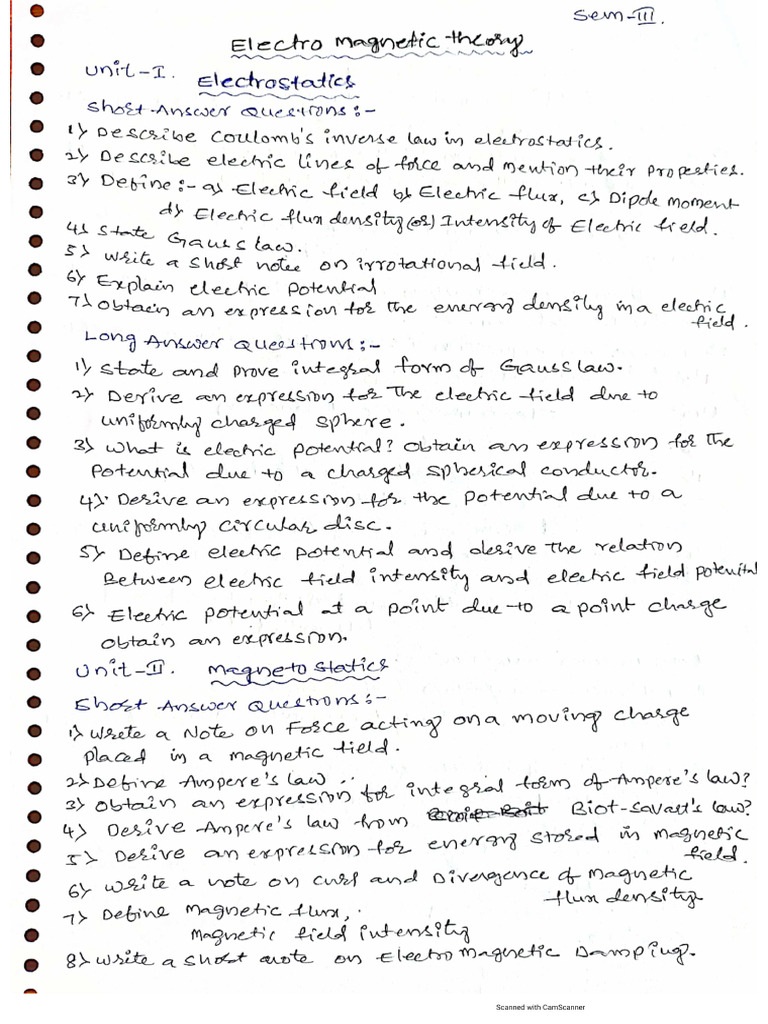 Sem-III.
Electro magnetic theory
Unit-I. Electrostatics
Short Answer Questions:-
1) Describe Coulomb's inverse law in electrostatics.
2) Describe electric lines of force and mention their properties.
3) Define:- a) Electric field b) Electric flux, c) Dipole moment
d) Electric flux density (or) Intensity of Electric field.
4) State Gauss law.
5) Write a short note on irrotational field.
6) Explain electric potential
7) Obtain an expression for the energy density in a electric
field.
Long Answer Questions:-
1) State and prove integral form of Gauss law.
2) Derive an expression for the electric field due to
uniformly charged sphere.
3) What is electric potential? Obtain an expression for the
potential due to a charged spherical conductor.
4) Derive an expression for the potential due to a
uniformly circular disc.
5) Define electric potential and derive the relation
Between electric field intensity and electric field potenital
6) Electric potential at a point due to a point charge
obtain an expression.
Unit-II. Magneto statics
Short Answer Questions:-
1) Write a Note on Force acting on a moving charge
placed in a magnetic field.
2) Define Ampere's law
3) Obtain an expression for integral form of Ampere's law?
4) Derive Ampere's law from Biot-Savart's law?
5) Derive an expression for energy stored in magnetic
field.
6) Write a note on curl and Divergence of Magnetic
flux density
7) Define Magnetic flux,
Magnetic field intensity
8) Write a short note on Electro Magnetic Damping.
Scanned with CamScanner